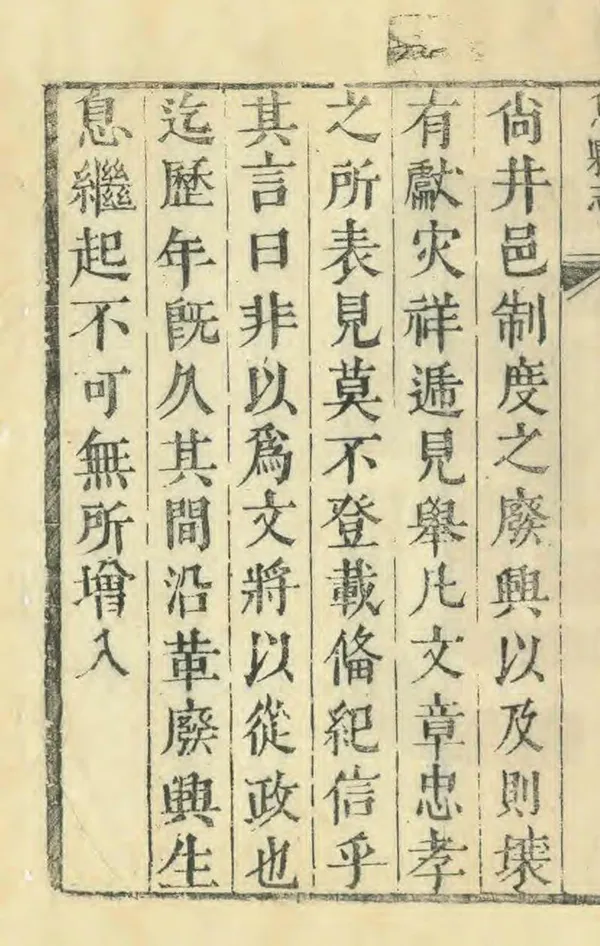 尙井邑制度之廢興以及則壤
有獻灾祥遞見舉凡文章忠孝
之所表見莫不登載俻紀信乎
其言曰非以爲文將以從政也
迄歷年旣久其間沿革廢興生
息繼起不可無所增入